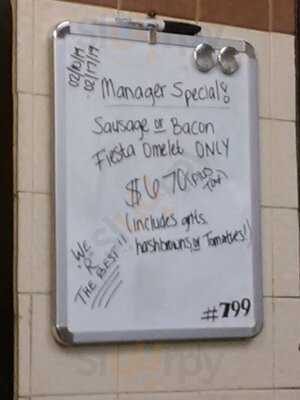 02/10/19
-02/17/19
Manager Special:
Sausage or Bacon
Fiesta Omelet ONLY
$6.70 (plus tax)
(includes grits,
hashbrowns, or Tomatoes!)
"WE
"R"
THE BEST"!!
#799
sirpy